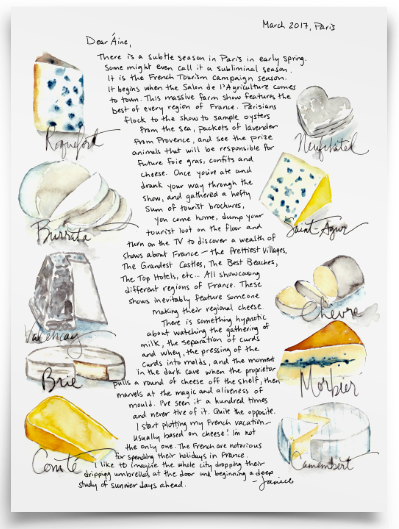 March 2017, Paris
Dear Áine,
There is a subtle season in Paris in early spring.
Some might even call it a subliminal season.
It is the French Tourism campaign season.
It begins when the Salon de l'Agriculture comes
to town. This massive farm show features the
best of every region of France. Parisians
flock to the show to sample oysters
from the sea, packets of lavender
from Provence, and see the prize
animals that will be responsible for
future foie gras, confits and
cheese. Once you've ate and
drank your way through the
show, and gathered a hefty
sum of tourist brochures,
you come home, dump your
tourist loot on the floor and
turn on the TV to discover a wealth of
shows about France – the Prettiest Villages,
The Grandest Castles, The Best Beaches,
The Top Hotels, etc... All showcasing
different regions of France. These
shows inevitably feature someone
making their regional cheese.
There is something hypnotic
about watching the gathering of
milk, the separation of curds
and whey, the pressing of the
curds into molds, and the moment
in the dark cave when the proprietor
pulls a round of cheese off the shelf, then
marvels at the magic and aliveness of
mould. I've seen it a hundred times
and never tire of it. Quite the opposite.
I start plotting my French vacation –
usually based on cheese! Im not
the only one. The French are notorious
for spending their holidays in France.
I like to imagine the whole city dropping their
dripping umbrellas at the door and beginning a deep
study of sunnier days ahead. – Janice
Roquefort
Neufchatel
Burrata
Saint Agur
Valencay
Chevre
Brie
Morbier
Comte
Camembert